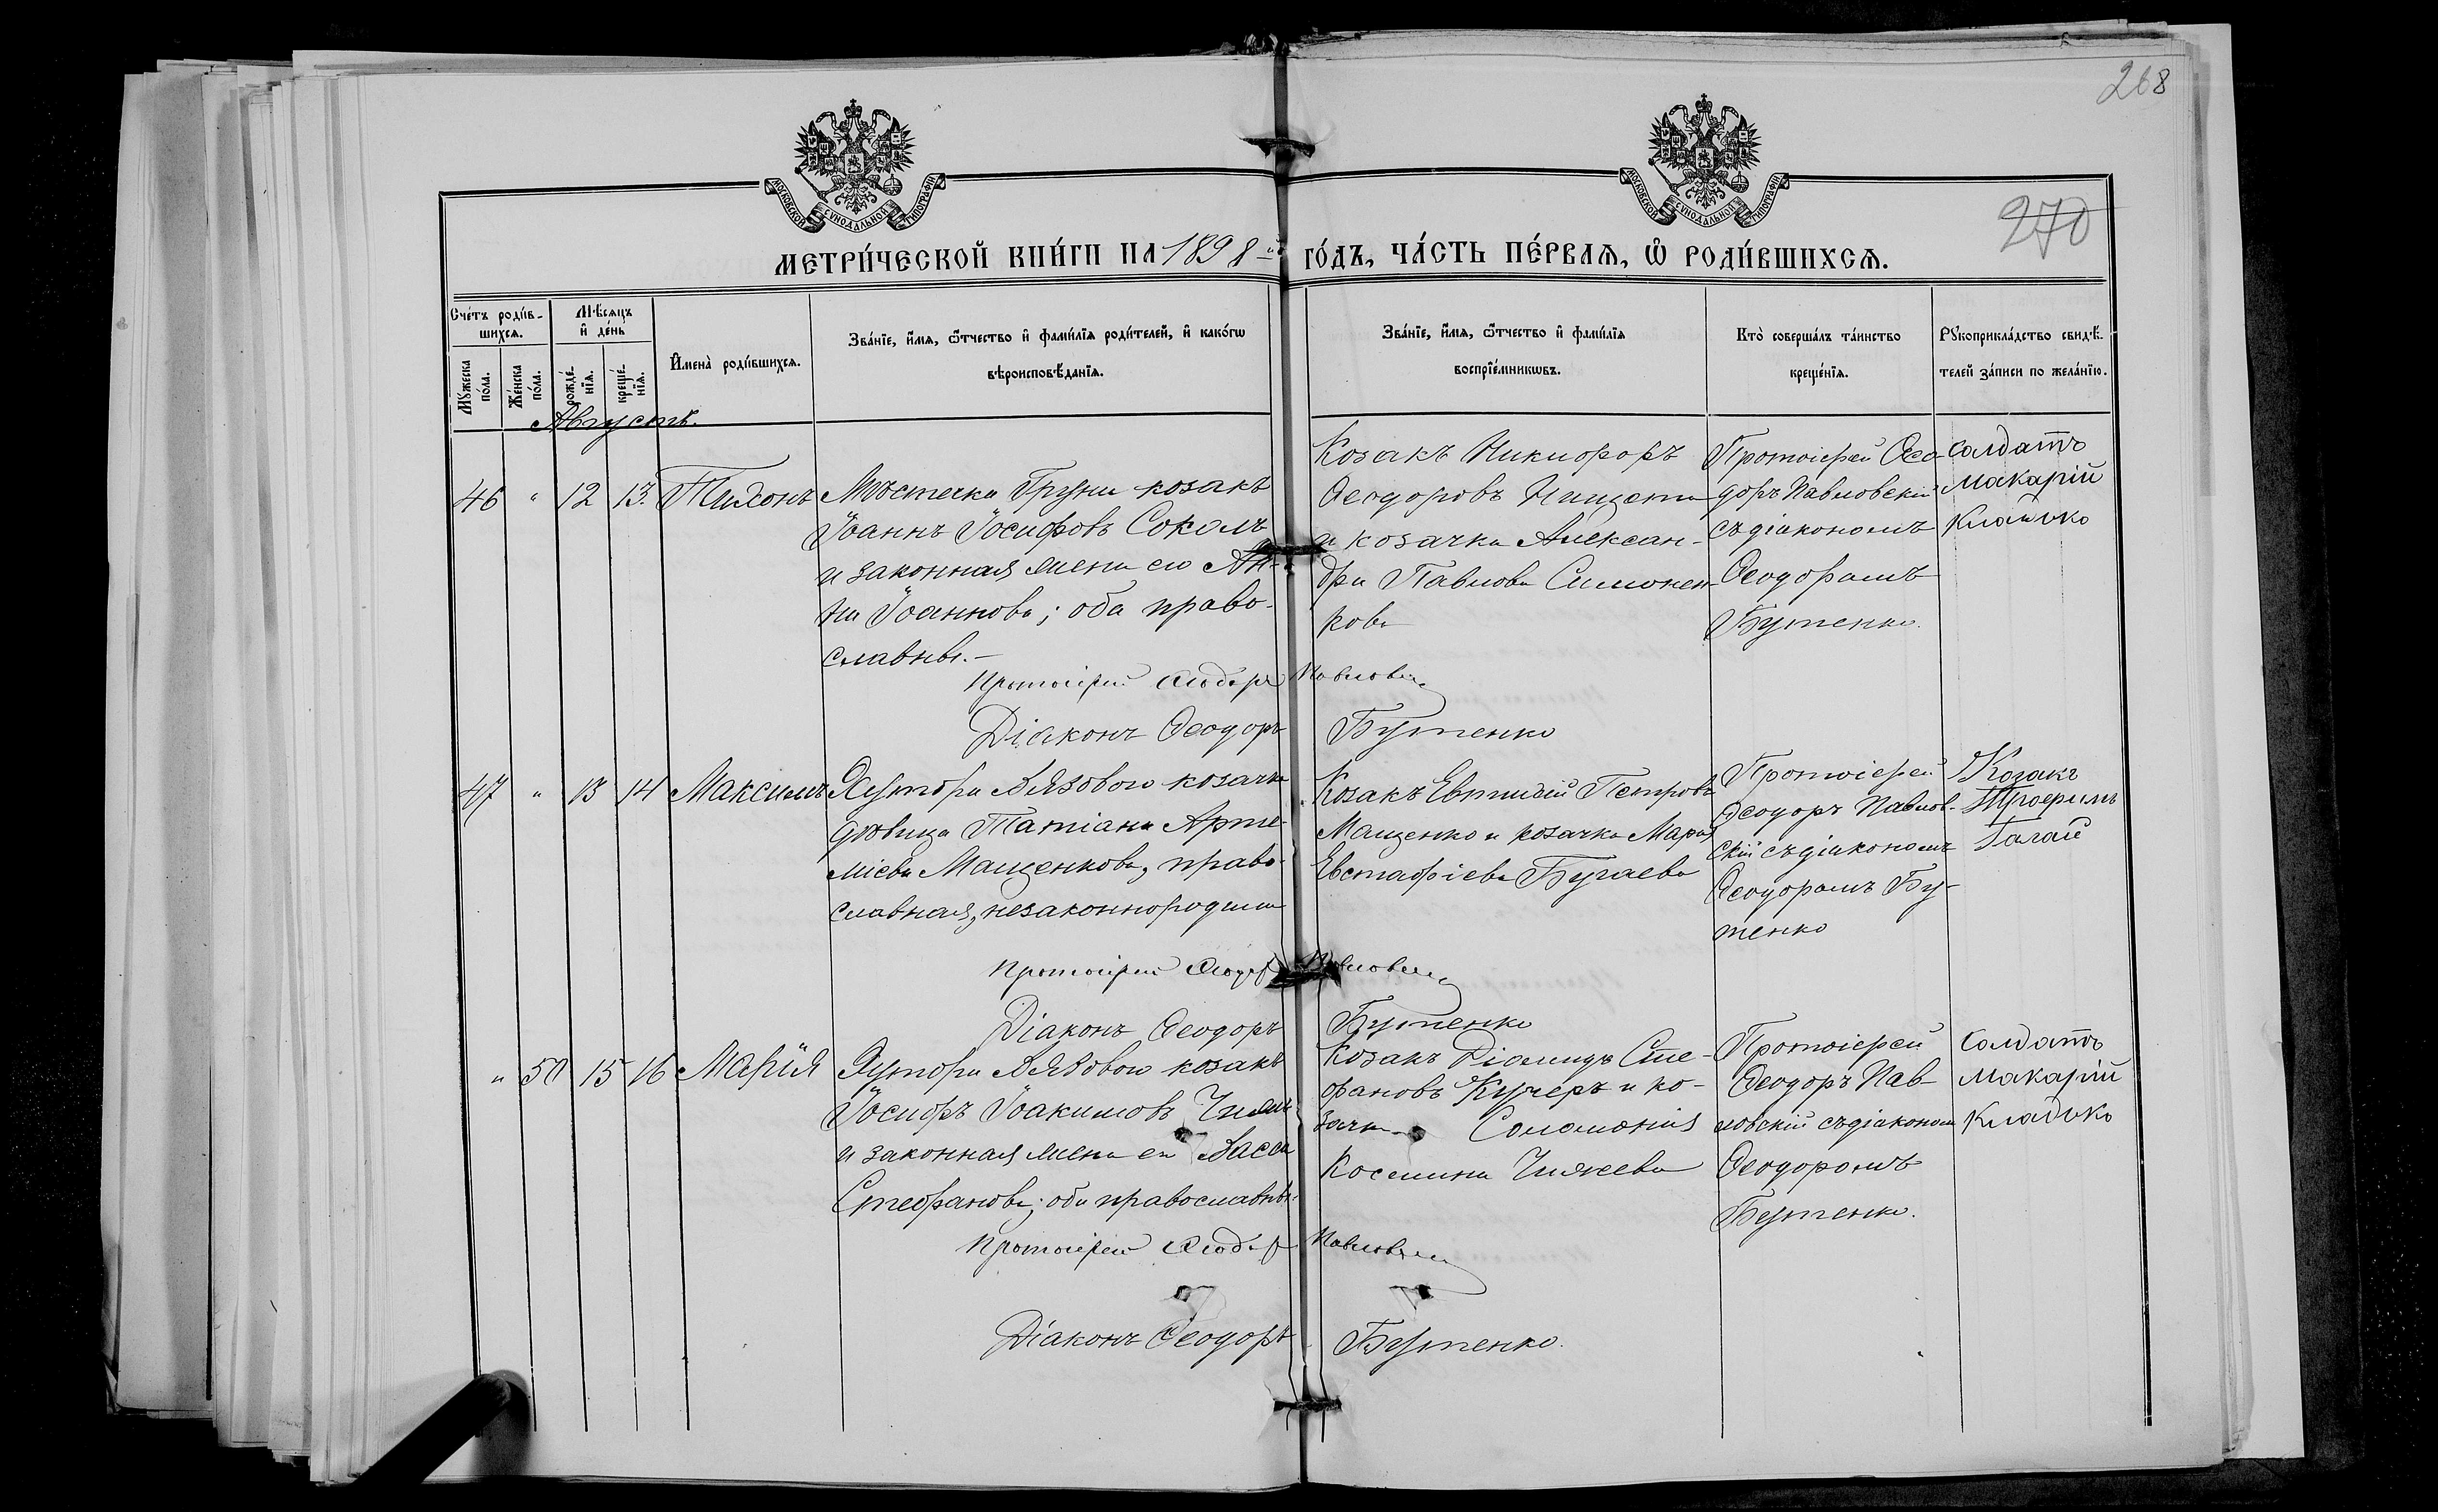 268
270
МОСКОВСКОЙ СѴНОДАЛЬНОЙ ТИПОГРАФІИ
МОСКОВСКОЙ СѴНОДАЛЬНОЙ ТИПОГРАФІИ
МЕТРИ́ЧЕСКОЙ КНИ́ГИ НА 1898й ГО́ДЪ, ЧА́СТЬ ПЕ́РВАѦ, Ѽ РОДИ́ВШИХСѦ.
Сче́тъ роди́в-
шихсѧ.
Мꙋжеска по́ла.
Же́нска по́ла.
Мѣ́сѧцъ
и҆ де́нь
рожде́-
нїѧ.
креще́-
нїѧ.
И҆мена̀ роди́вшихсѧ.
Зва́нїе, и҆́мѧ, ѻ҆́тчество и҆ фами́лїѧ роди́телей, и҆ како́гѡ
вѣроисповѣ́данїѧ.
Зва́нїе, и҆́мѧ, ѻ҆́тчество и҆ фами́лїѧ
воспрїе́мникѡвъ.
Кто̀ соверша́лъ та́инство
креще́нїѧ.
Рꙋкоприкла́дство свидѣ́-
телей за́писи по жела́нїю.
Августъ.
46 " 12 13. Тихонъ
Мѣстечка Груни козакъ
Іоаннъ Іосифовъ Соколъ
и законная жена его Ан-
на Іоаннова; оба право-
славны.–
Козакъ Никифоръ
Ѳеодоровъ Нищета
и козачка Алексан-
дра Павлова Симонен-
кова
Протоіерей Ѳео-
доръ Павловскій
съ діакономъ
Ѳеодоромъ
Бутенко.
солдатъ
Макарій
Протоіерей Ѳеодоръ Павловскій
Діаконъ Ѳеодоръ Бутенко
47 " 13 14 Максимъ
Хутора Вязового козачка
дѣвица Татіана Арте-
міева Мащенкова, право-
славная, незаконнорожден
Козакъ Евтихій Петровъ
Мащенко и козачка Марія
Евстафіева Бугаева
Протоіерей
Ѳеодоръ Павлов-
скій съ діакономъ
Ѳеодоромъ Бу-
тенко
Козакъ
Трофимъ
Галай
Протоіерей Ѳеодоръ Павловскій
Діаконъ Ѳеодоръ Бутенко
" 50 15 16 Марія
Хутора Вязового козакъ
Іосифъ Іоакимовъ
и законная жена его Васса
Стефанова; оба православны.
Козакъ Діомидъ Сте-
фановъ Кучеръ и ко-
зачка Соломонія
Космина Чижева
Протоіерей
Ѳеодоръ Пав-
ловскій съ діаконом
Ѳеодоромъ
Бутенко.
Солдатъ
Макарій
Протоіерей Ѳеодоръ Павловскій
Діаконъ Ѳеодоръ Бутенко.